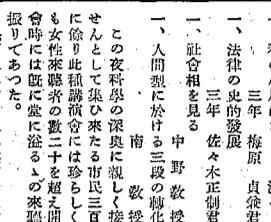 三年 梅原 貞發君
一、法律の史的發展
三年 佐々木正制君
一、社會相を見る
中野敎授
一、人間型に於ける三段の轉化
南敎授
この夜科學の深奥に親しく接
せんとして集ひ來たる市民三百
に餘り此種講演會には珍らしく
も女性來聽者の數二十を超え開
會時には既に堂に溢るゝの來聽
振りであつた。